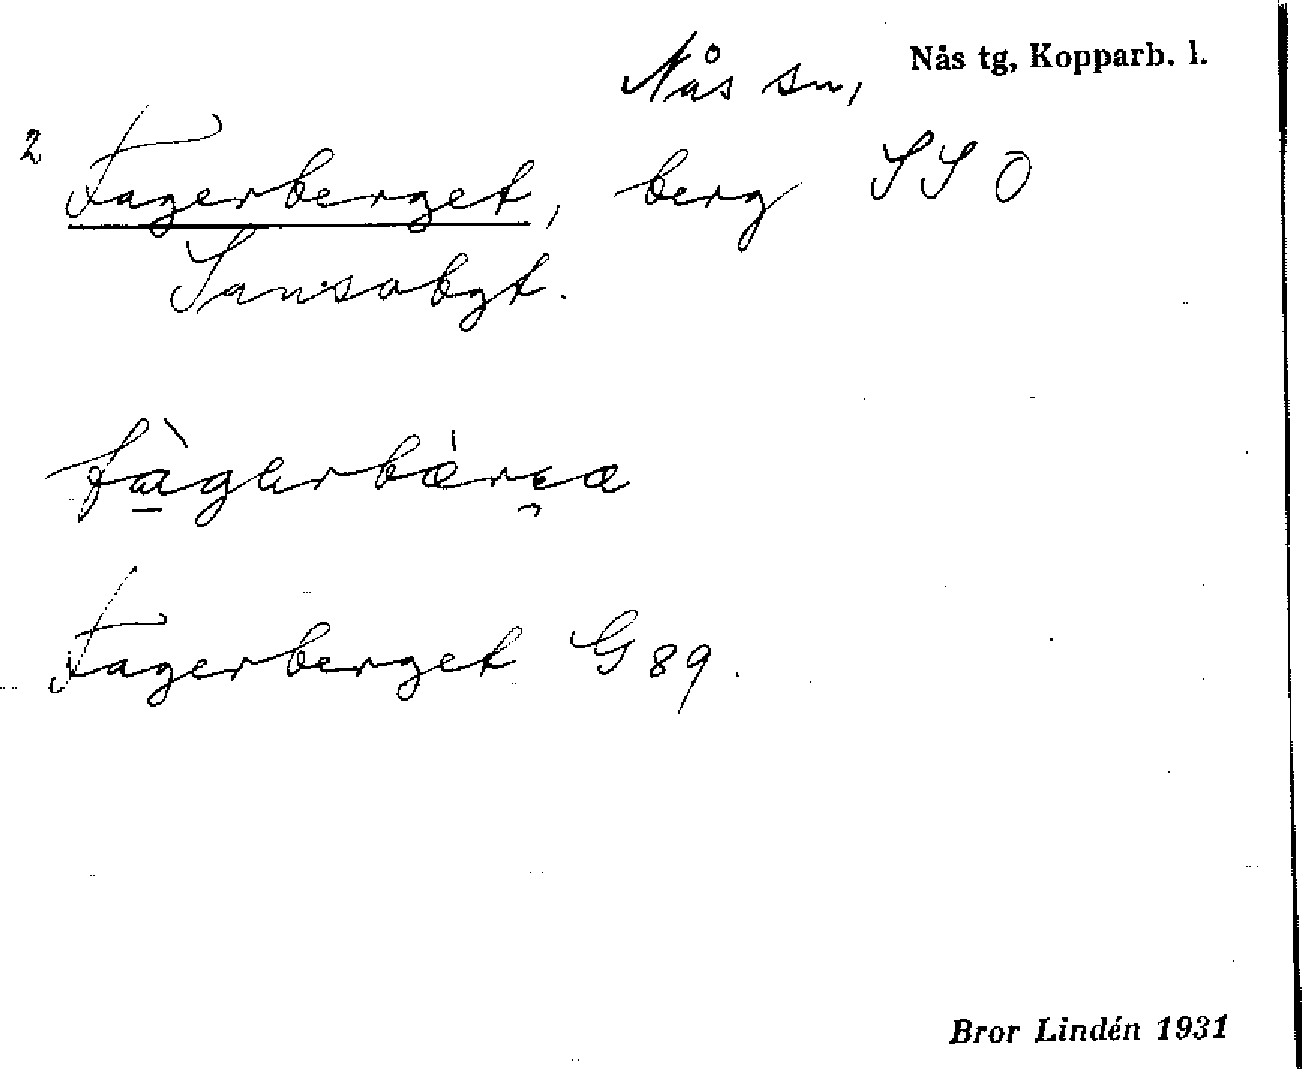 Nås sn, Nås tg, Kopparb. l.
2 Fagerberget, berg SSO
Sansabgt.
fàgerbærɛa
Fagerberget G 89.
Bror Lindén 1931